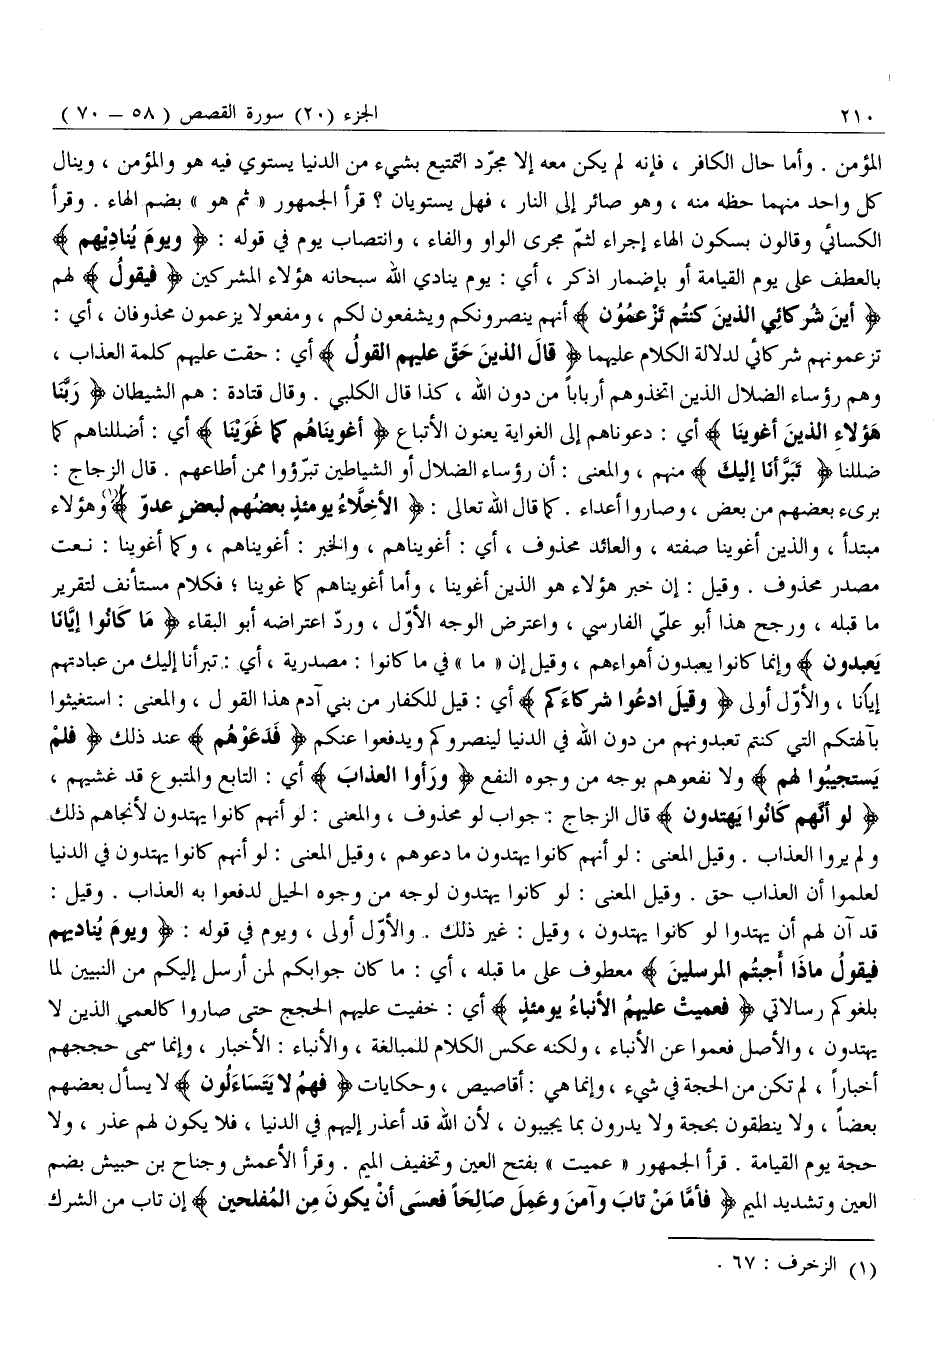 ٢١٠
الجزء (٢٠) سورة القصص ( ٥٨ – ٧٠ )
المؤمن . وأما حال الكافر ، فإنه لم يكن معه إلا مجرّد التمتيع بشيء من الدنيا يستوي فيه هو والمؤمن ، وينال
كل واحد منهما حظه منه ، وهو صائر إلى النار ، فهل يستويان ؟ قرأ الجمهور « ثم هو » بضم الهاء . وقرأ
الكسائي وقالون بسكون الهاء إجراء لثمّ مجرى الواو والفاء ، وانتصاب يوم في قوله : ﴿ ويومَ يُناديْهم ﴾
بالعطف على يوم القيامة أو بإضمار اذكر ، أي : يوم ينادي الله سبحانه هؤلاء المشركين ﴿ فيقولُ ﴾ لهم
﴿ أينَ شُركائِي الذينَ كنتُم تَزْعمُوُن ﴾ أنهم ينصرونكم ويشفعون لكم ، ومفعولا يزعمون محذوفان ، أي :
تزعمونهم شركائي لدلالة الكلام عليهما ﴿ قالَ الذينَ حَقّ عليهم القولُ ﴾ أي : حقت عليهم كلمة العذاب ،
وهم رؤساء الضلال الذين اتخذوهم أرباباً من دون الله ، كذا قال الكلبي . وقال قتادة : هم الشيطان ﴿ رَبَّنَا
هَؤلاءِ الذينَ أغوينا ﴾ أي : دعوناهم إلى الغواية يعنون الأتباع ﴿ أغويناهُم كما غَوَيْنا ﴾ أي : أضللناهم كما
ضللنا ﴿ تَبَرَّأنا إليكَ ﴾ منهم ، والمعنى : أن رؤساء الضلال أو الشياطين تبرّؤوا ممن أطاعهم . قال الزجاج :
برىء بعضهم من بعض ، وصاروا أعداء . كما قال الله تعالى : ﴿ الأخِلَّاءُ يومئذٍ بعضُهم لبعضٍ عدوّ ﴾(١) وهؤلاء
مبتدأ ، والذين أغوينا صفته ، والعائد محذوف ، أي : أغويناهم ، والخبر : أغويناهم ، وكما أغوينا : نعت
مصدر محذوف . وقيل : إن خبر هؤلاء هو الذين أغوينا ، وأما أغويناهم كما غوينا ؛ فكلام مستأنف لتقرير
ما قبله ، ورجح هذا أبو عليّ الفارسي ، واعترض الوجه الأوّل ، وردّ اعتراضه أبو البقاء ﴿ مَا كَانُوا إيَّانَا
يَعبدون ﴾ وإنما كانوا يعبدون أهواءهم ، وقيل إن « ما » في ما كانوا : مصدرية ، أي : تبرأنا إليك من عبادتهم
إيانا ، والأوّل أولى ﴿ وقيلَ ادعُوا شركاءَكم ﴾ أي : قيل للكفار من بني آدم هذا القول ، والمعنى : استغيثوا
بآلهتكم التي كنتم تعبدونهم من دون الله في الدنيا لينصروكم ويدفعوا عنكم ﴿ فَدَعَوْهُم ﴾ عند ذلك ﴿ فلمْ
يَستجيبُوا لهم ﴾ ولا نفعوهم بوجه من وجوه النفع ﴿ ورَأوا العذابَ ﴾ أي : التابع والمتبوع قد غشيهم ،
﴿ لو أنَّهم كَانُوا يَهتدون ﴾ قال الزجاج : جواب لو محذوف ، والمعنى : لو أنهم كانوا يهتدون لأنجاهم ذلك
ولم يروا العذاب . وقيل المعنى : لو أنهم كانوا يهتدون ما دعوهم ، وقيل المعنى : لو أنهم كانوا يهتدون في الدنيا
لعلموا أن العذاب حق . وقيل المعنى : لو كانوا يهتدون لوجه من وجوه الحيل لدفعوا به العذاب . وقيل :
قد آن لهم أن يهتدوا لو كانوا يهتدون ، وقيل : غير ذلك . والأوّل أولى ، ويوم في قوله : ﴿ ويومَ يُناديهم
فيقولُ ماذَا أَجبتُم المرسلينَ ﴾ معطوف على ما قبله ، أي : ما كان جوابكم لمن أرسل إليكم من النبيين لما
بلغوكم رسالاتي ﴿ فعميتْ عليهمُ الأنباءُ يومئذٍ ﴾ أي : خفيت عليهم الحجج حتى صاروا كالعمي الذين لا
يهتدون ، والأصل فعموا عن الأنباء ، ولكنه عكس الكلام للمبالغة ، والأنباء : الأخبار ، وإنما سمى حججهم
أخباراً ، لم تكن من الحجة في شيء ، وإنما هي : أقاصيص ، وحكايات ﴿ فهمُ لا يَتَساءَلُون ﴾ لا يسأل بعضهم
بعضاً ، ولا ينطقون بحجة ولا يدرون بما يجيبون ، لأن الله قد أعذر إليهم في الدنيا ، فلا يكون لهم عذر ، ولا
حجة يوم القيامة . قرأ الجمهور « عميت » بفتح العين وتخفيف الميم . وقرأ الأعمش وجناح بن حبيش بضم
العين وتشديد الميم ﴿ فأمَّا مَنْ تابَ وآمنَ وعَمِلَ صَالِحَاً فعسَى أنْ يكونَ مِن المُفلحين ﴾ إن تاب من الشرك
(١) الزخرف : ٦٧ .